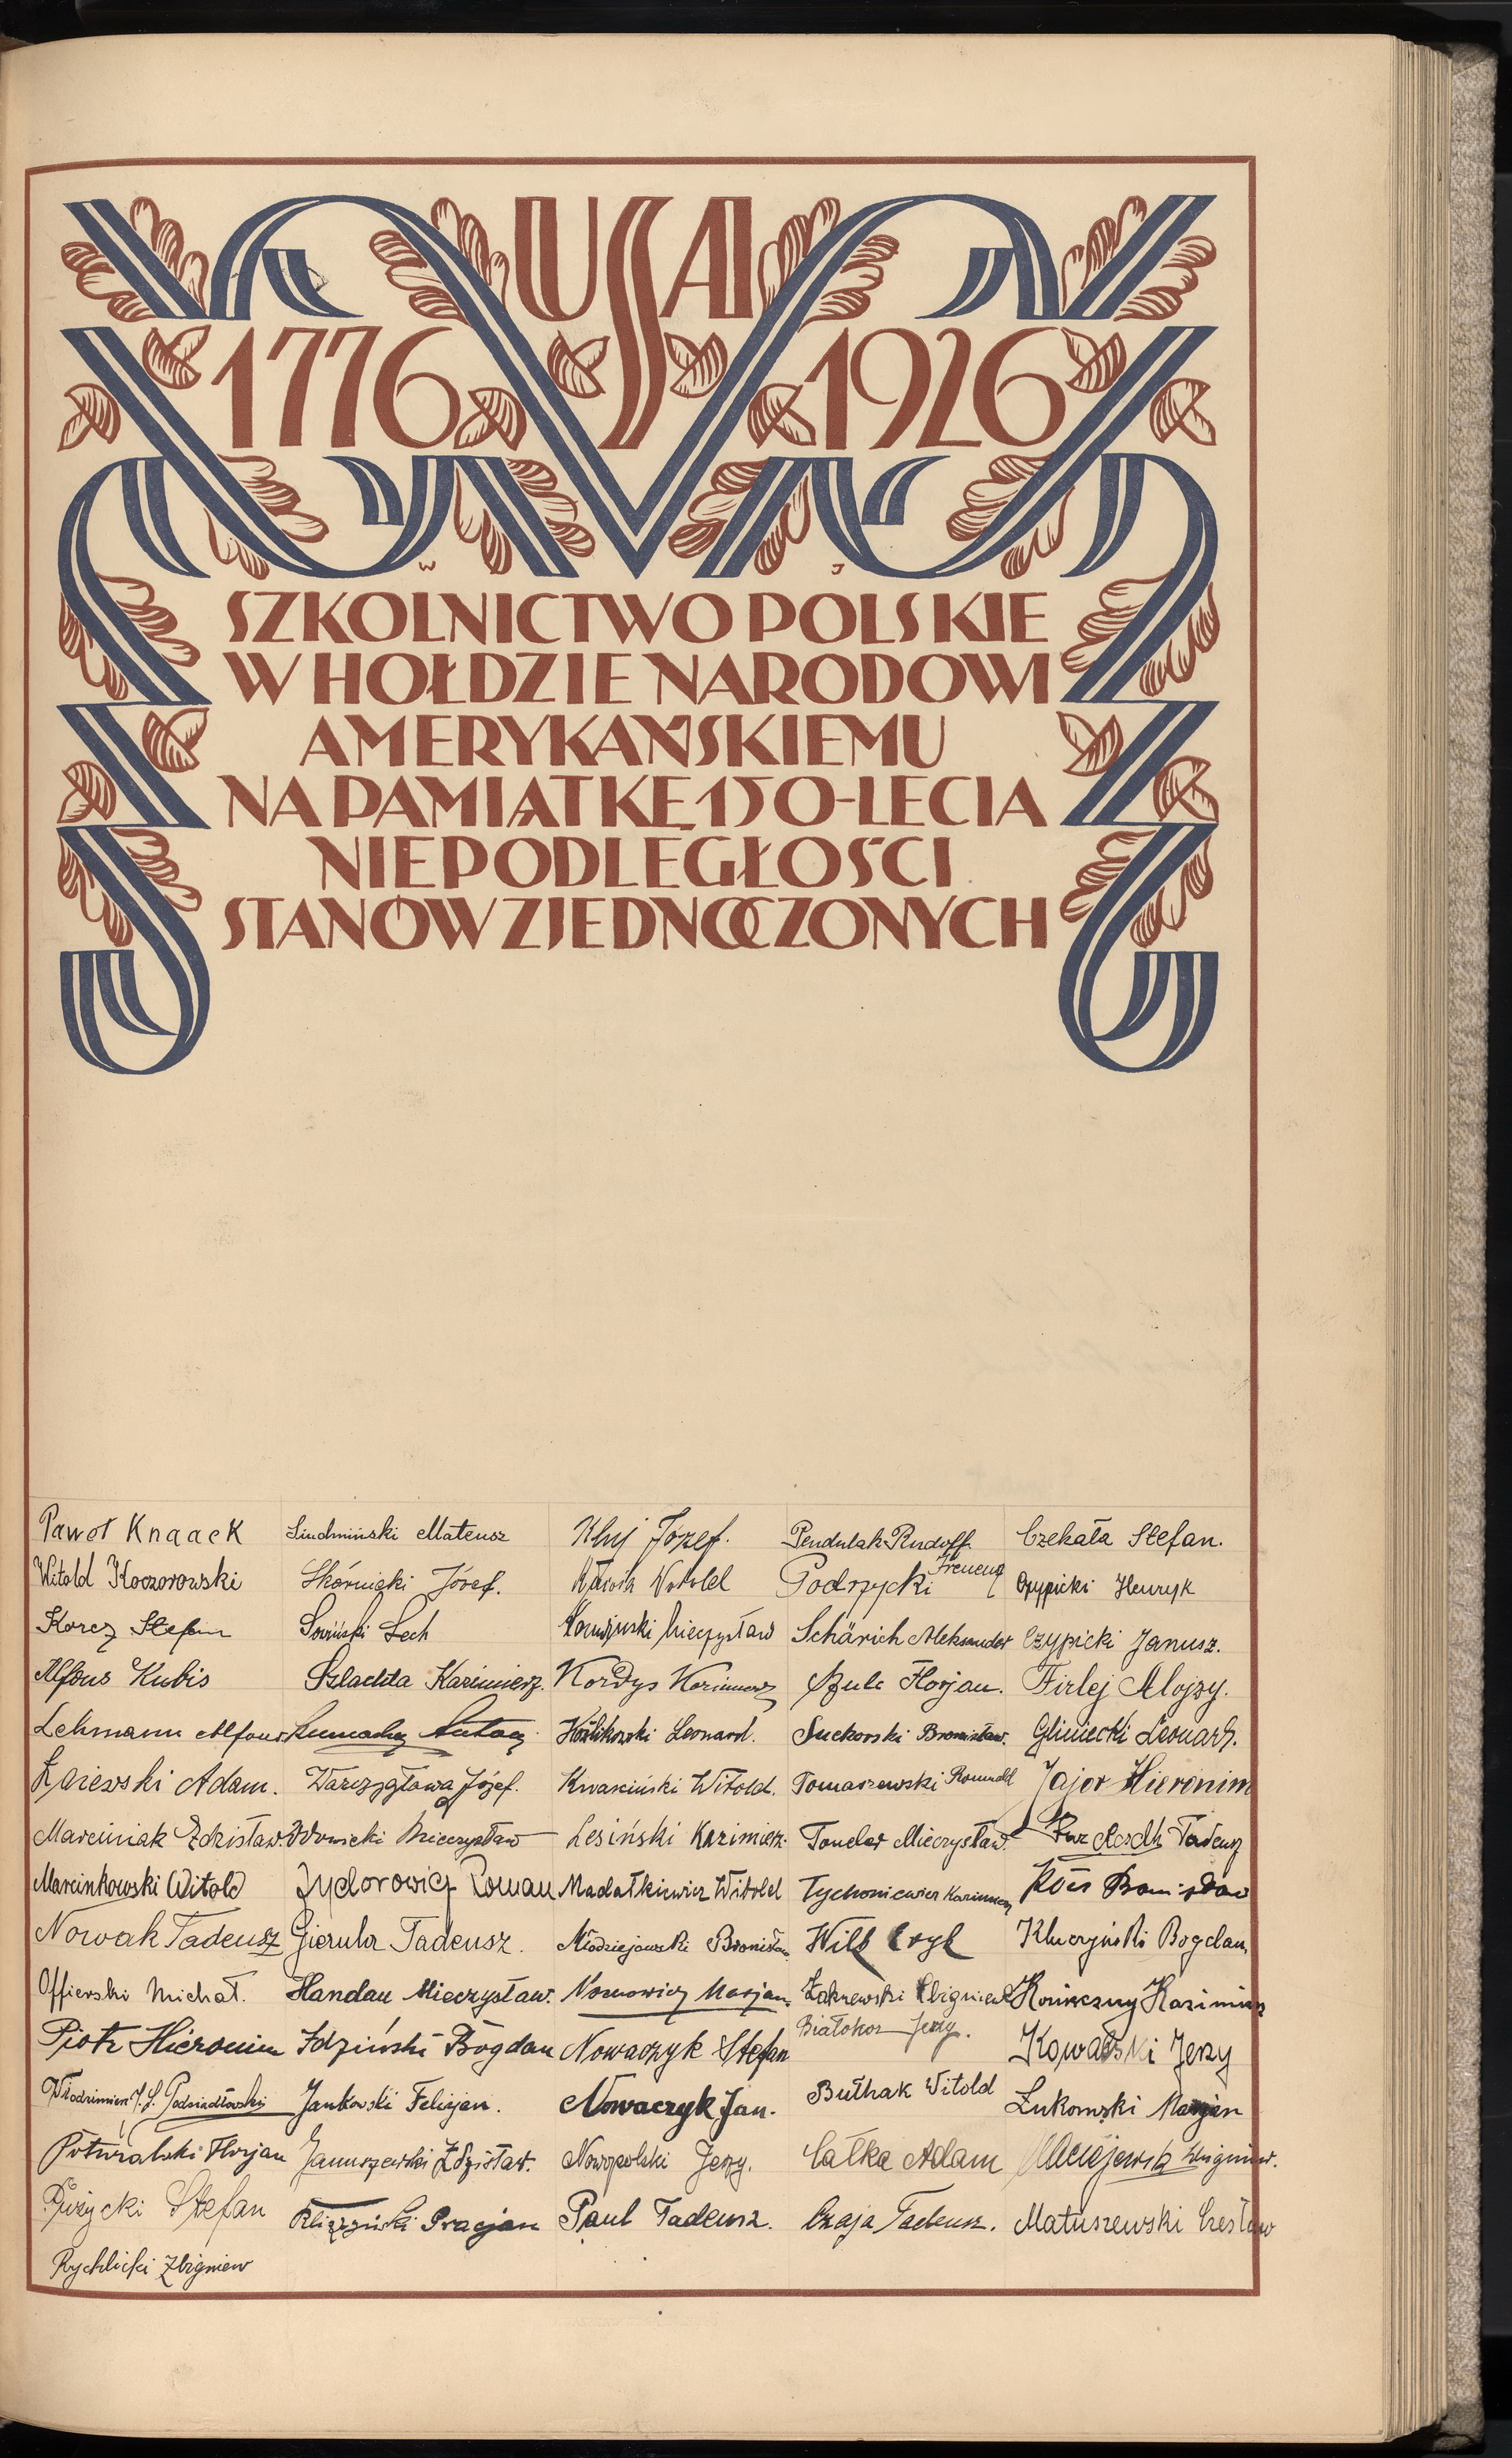 USA
1776 1926
W J
SZKOLNICTWO POLSKIE
W HOŁDZIE NARODOWI
AMERYKAŃSKIEMU
NA PAMIĄTKĘ 150-LECIA
NIEPODLEGŁOŚCI
STANÓW ZJEDNOCZONYCH
Paweł Knaack
Witold Koczorowski
Korcz Stefan
Alfons Kubis
Lehmann Alfons
Łajewski Adam.
Marciniak Zdzisław
Marcinkowski Witold
Nowak Tadeusz
Offierski Michał.
Piotr Hieronim
Włodzimierz J. S. Podsiadłowski
Potwralski Florjan
Różycki Stefan
Rychlicki Zbigniew
Siudmiński Mateusz
Skórnicki Józef.
Sowiński Lech
Szlachta Kazimierz.
Antoni
Warzygłowa Józef.
Wdowicki Mieczysław
Zydorowicz Roman
Gierula Tadeusz.
Handau Mieczysław.
Idziński Bogdan
Jankowski Felicjan.
Januszewski Zdzisław.
Gracjan
Kluj Józef.
Witold
Mieczysław
Kordys Kazimierz
Koźlikowski Leonard.
Kwaśniński Witold.
Lesiński Kazimierz.
Madałkiewicz Witold
Młodziejowski Bronisław
Nomowicz Marjan.
Nowaczyk Stefan
Nowaczyk Jan.
Nowopolski Jerzy.
Paul Tadeusz.
Pendulak Rudolf.
Podrzycki Ireneusz
Schärich Aleksander
Szulc Florjan.
Suchorski Bronisław.
Tomaszewski Romuald
Tonder Mieczysław.
Tychoniewicz Kazimierz
Wilk Eryk
Zakrzewski Zbigniew
Białokoz Jerzy.
Bułhak Witold
Całka Adam
Czaja Tadeusz.
Czekała Stefan.
Czypicki Henryk
Czypicki Janusz.
Firlej Alojzy.
Gliniecki Leonard.
Jajor Hieronim
Tadeusz
Bronisław
Kluczyński Bogdan
Konieczny Kazimierz
Kowalski Jerzy
Łukomski Marjan
Maciejewski Zbigniew.
Matuszewski Czesław